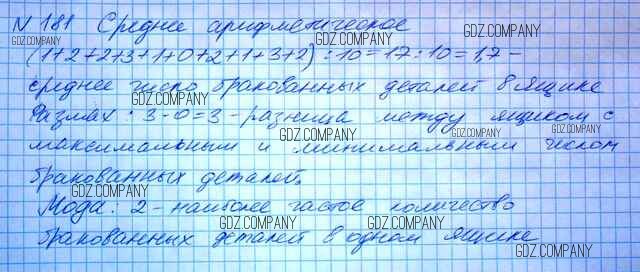 N 181 Среднее арифметическое
(1+2+2+3+1+0+2+1+3+2) : 10 = 17 : 10 = 1,7 –
среднее число бракованных деталей в ящике
Размах : 3-0=3 - разница между ящиком с
максимальным и минимальным числом
бракованных деталей.
Мода: 2 - наиболее частое количество
бракованных деталей в одном ящике
GDZ.COMPANY
GDZ.COMPANY
GDZ.COMPANY
GDZ.COMPANY
GDZ.COMPANY
GDZ.COMPANY
GDZ.COMPANY
GDZ.COMPANY
GDZ.COMPANY
GDZ.COMPANY
GDZ.COMPANY
GDZ.COMPANY
GDZ.COMPANY